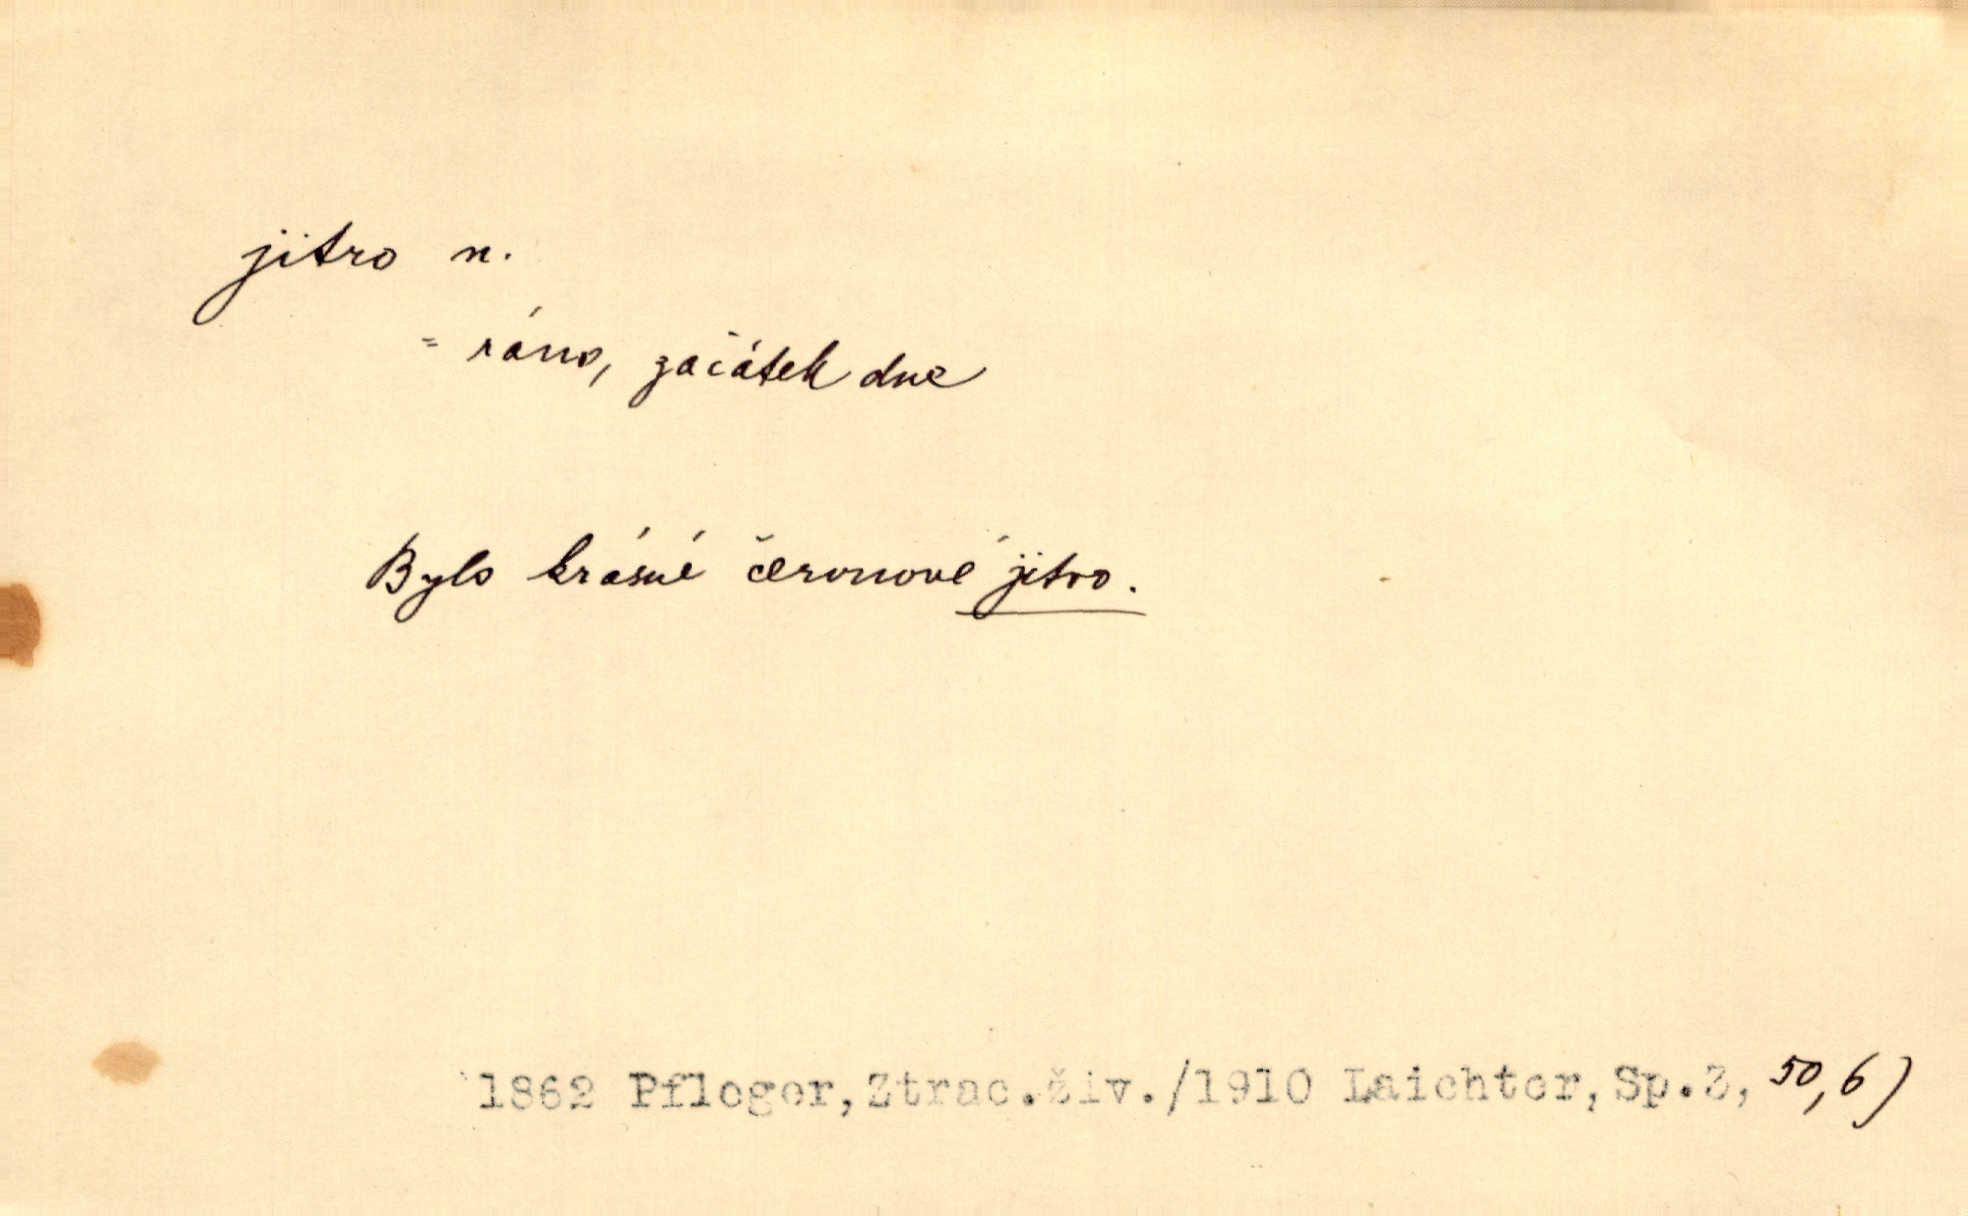 jitro n.
= ráno, začátek dne
Bylo krásné červnové jitro.
1862 Pfleger,Ztrac.živ./1910 Laichter,Sp.3, 50,6)